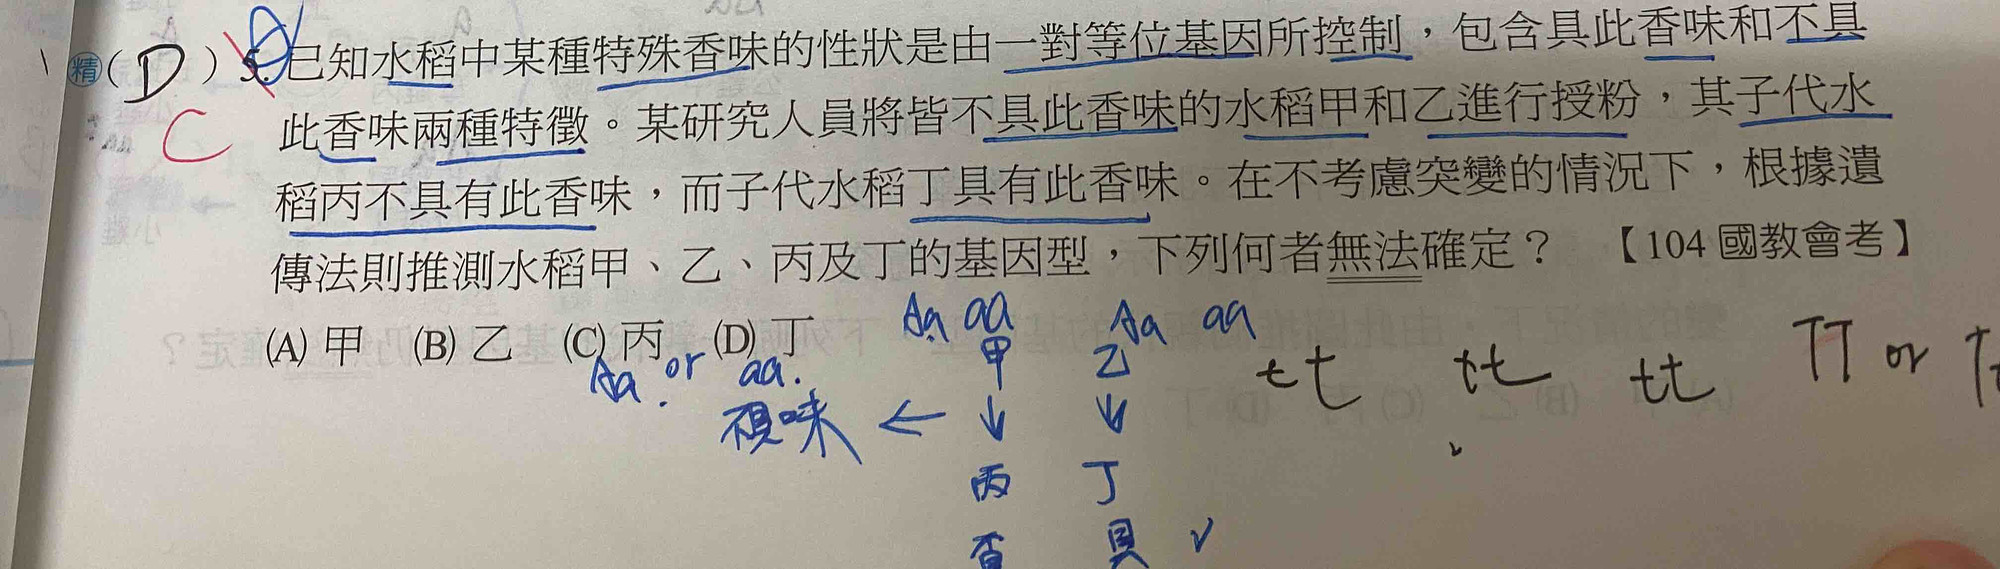 精 ( D ) 5. 已知水稻中某種特殊香味的性狀是由一對等位基因所控制，包含具此香味和不具
C 此香味兩種特徵。某研究人員將皆不具此香味的水稻甲和乙進行授粉，其子代水
稻丙不具有此香味，而子代水稻丁具有此香味。在不考慮突變的情況下，根據遺
傳法則推測水稻甲、乙、丙及丁的基因型，下列何者無法確定？ 【104 國教會考】
(A) 甲 (B) 乙 (C) 丙 (D) 丁
Aa aa Aa aa
甲 乙 tt tt tt TT or
Aa or aa.
味 ← ↓ ↓
丙 丁
具 ✓